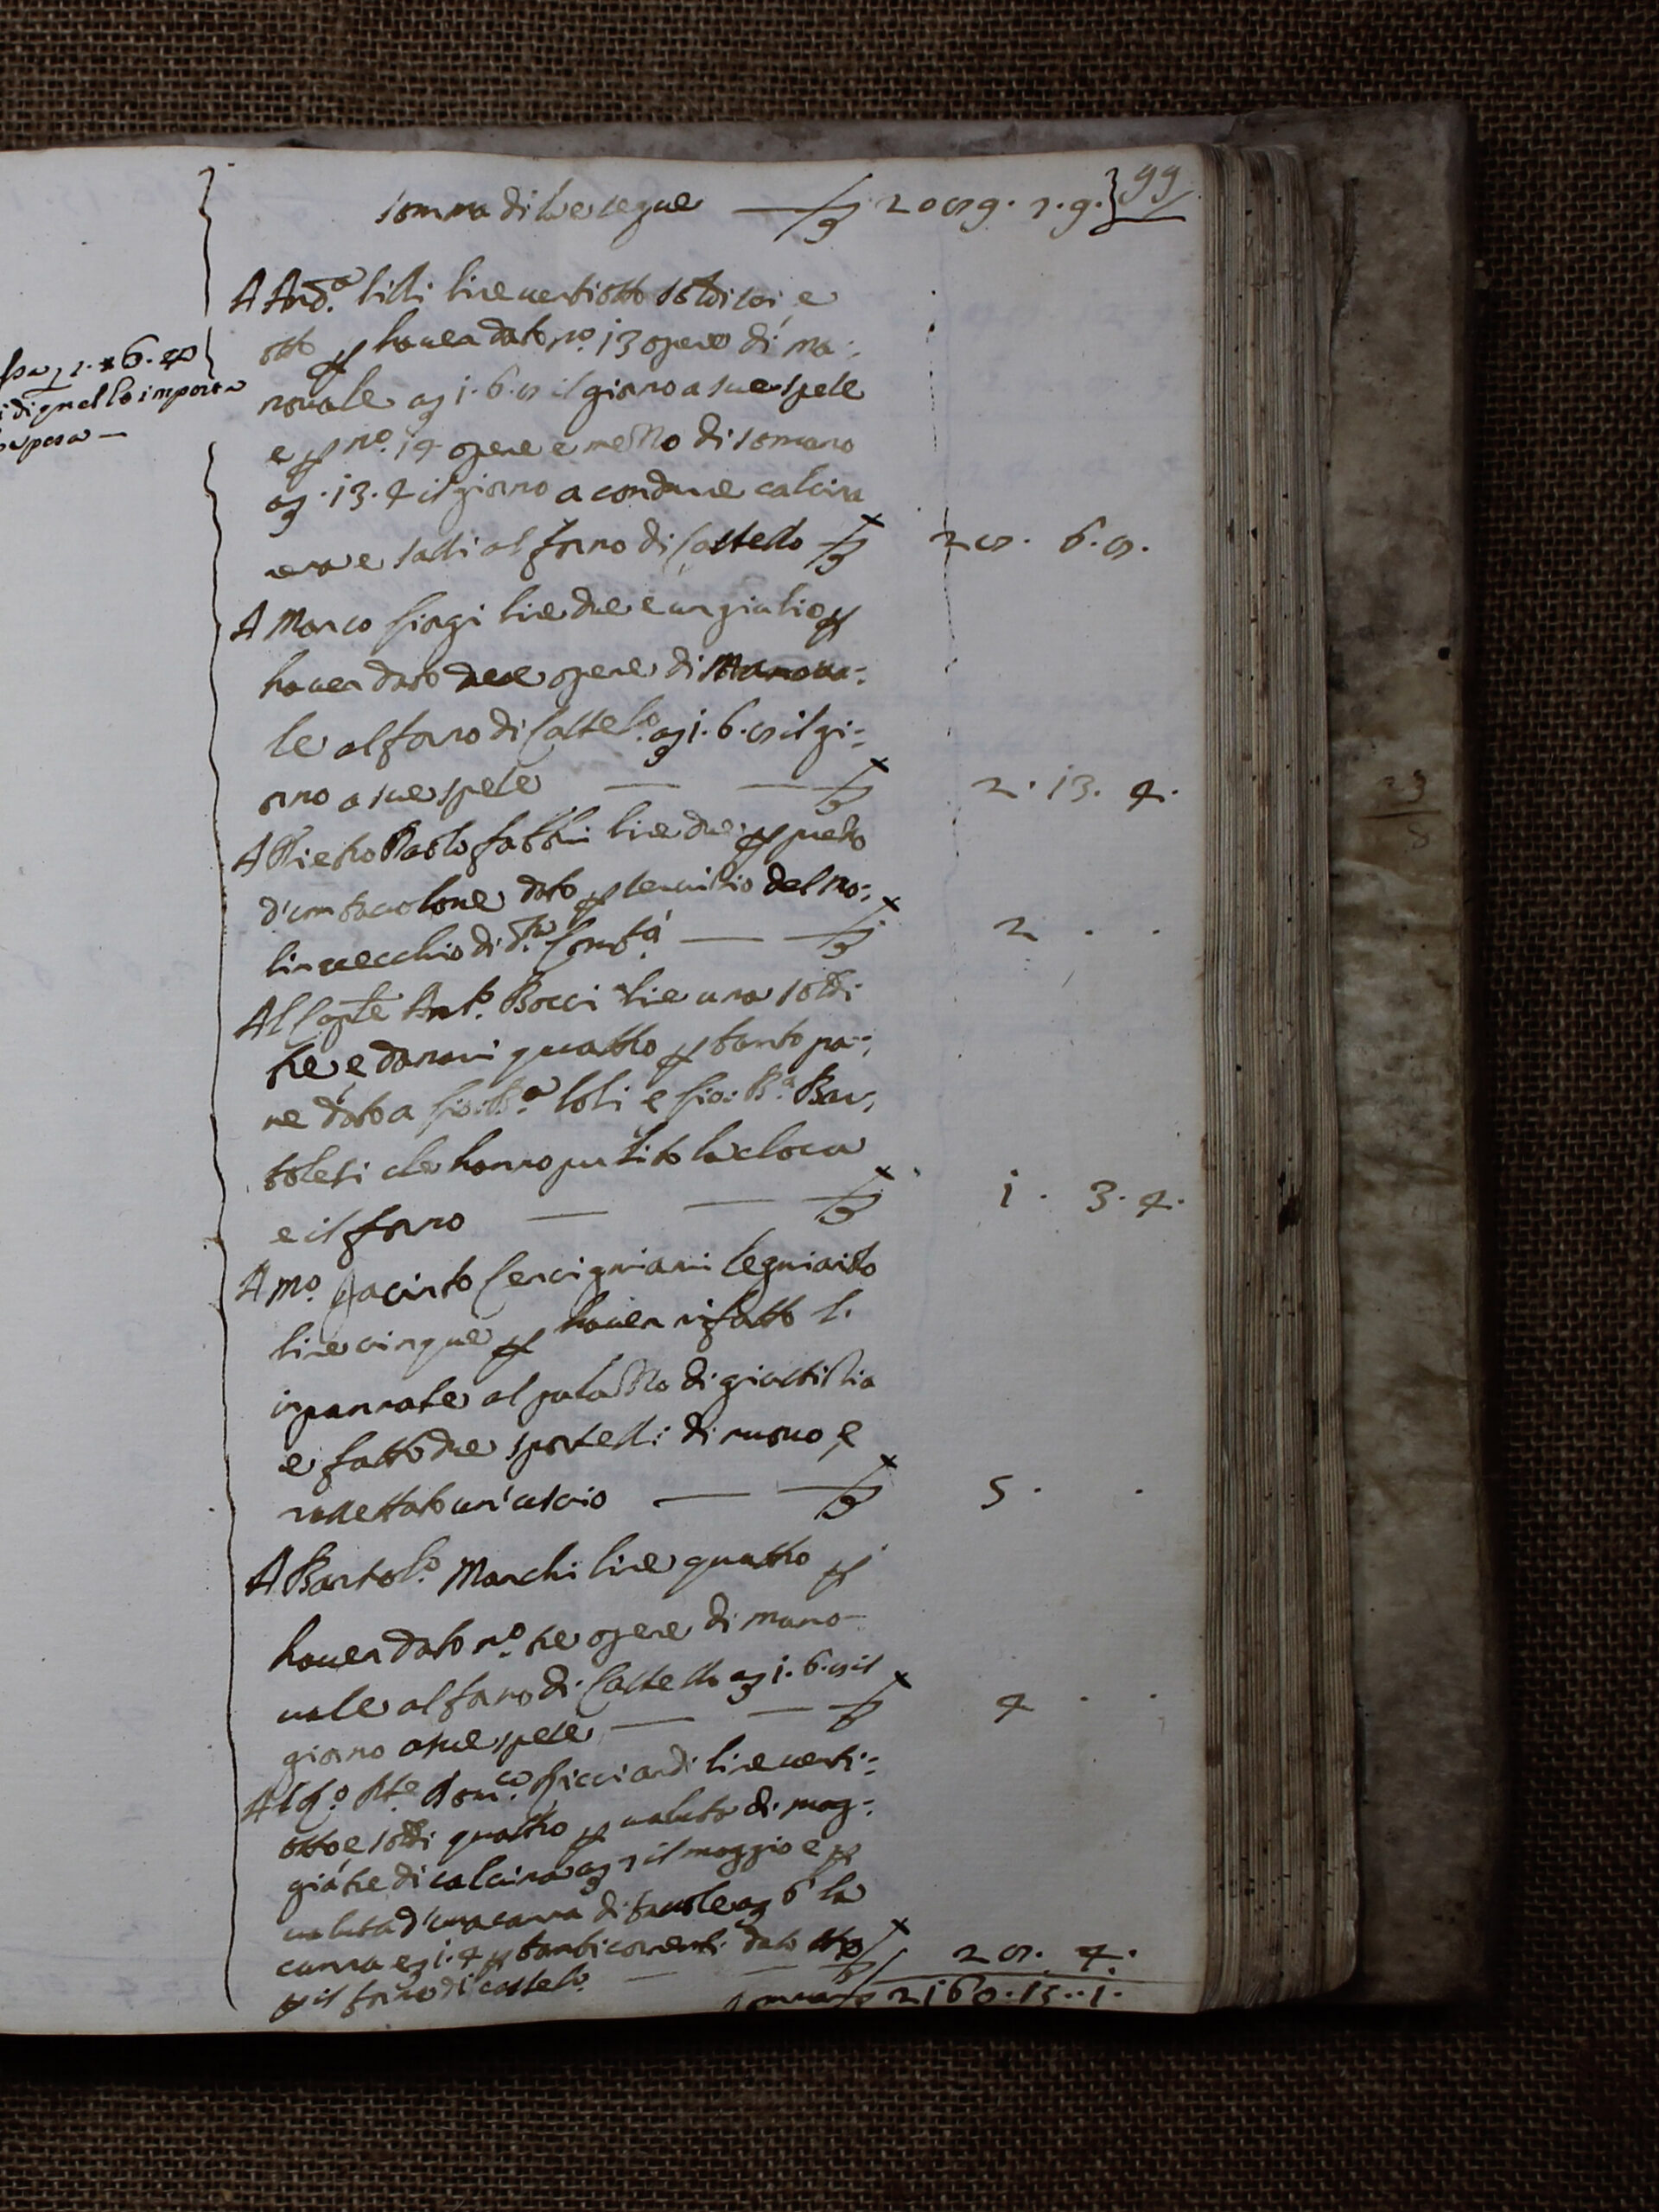 somma di là e segue — £ 2089. 7. 9. 99
A And.a Lilli lire ventiotto soldi sei, e
otto p haver dato no. 13 opere di ma:
novale a £ 1. 6. 8 il giorno a sue spese
e p no. 14 opere e mezzo di somaro
a £ .13. 4 il giorno a condurre calcina
rena e sassi al forno di Castello £ 28. 6. 8.
A Marco Giorgi lire due e un giulio p
haver dato due opere di Manova:
le al forno di Castel.o a £ 1. 6. 8 il gi:
orno a sue spese — — £ 2. 13. 4.
A Pietro Paolo fabbri lire due p prezzo
d'un tavolone dato p servizio del mo:
lin vecchio di d.ta Com.tà — £ 2 . .
Al Cap.te Ant.o Bocci lire una soldi
tre e danari quattro p tanto pa:
ne dato a Gio: B.a Loli e Gio: B.a Bar,
tolesi che hanno pulito la cloca
e il forno — — £ 1. 3. 4.
A Mo. Jacinto Cercigniani legniaiolo
lire cinque p haver rifatto l.
inpannate al palazzo di giustizia
e fatto due sportelli di nuovo, e
rassettato un' uscio — £ 5. .
A Bartol.o Marchi lire quattro p
haver dato no. tre opere di mano-
vale al forno di Castello a £ 1. 6. 8 il
giorno a sue spese — — £ 4 . .
Al S.o P.te Dom.co Ricciardi lire venti:
otto e soldi quattro p valuta di mog:
gia tre di calcina a £ 7 il moggio e p
valuta d'una canna di tavole a £ 6 la
canna e £ 1. 4 p tanti correnti dato
p il forno di castelo. — — £ 28. 4.
Somma £ 2160. 15. 1.